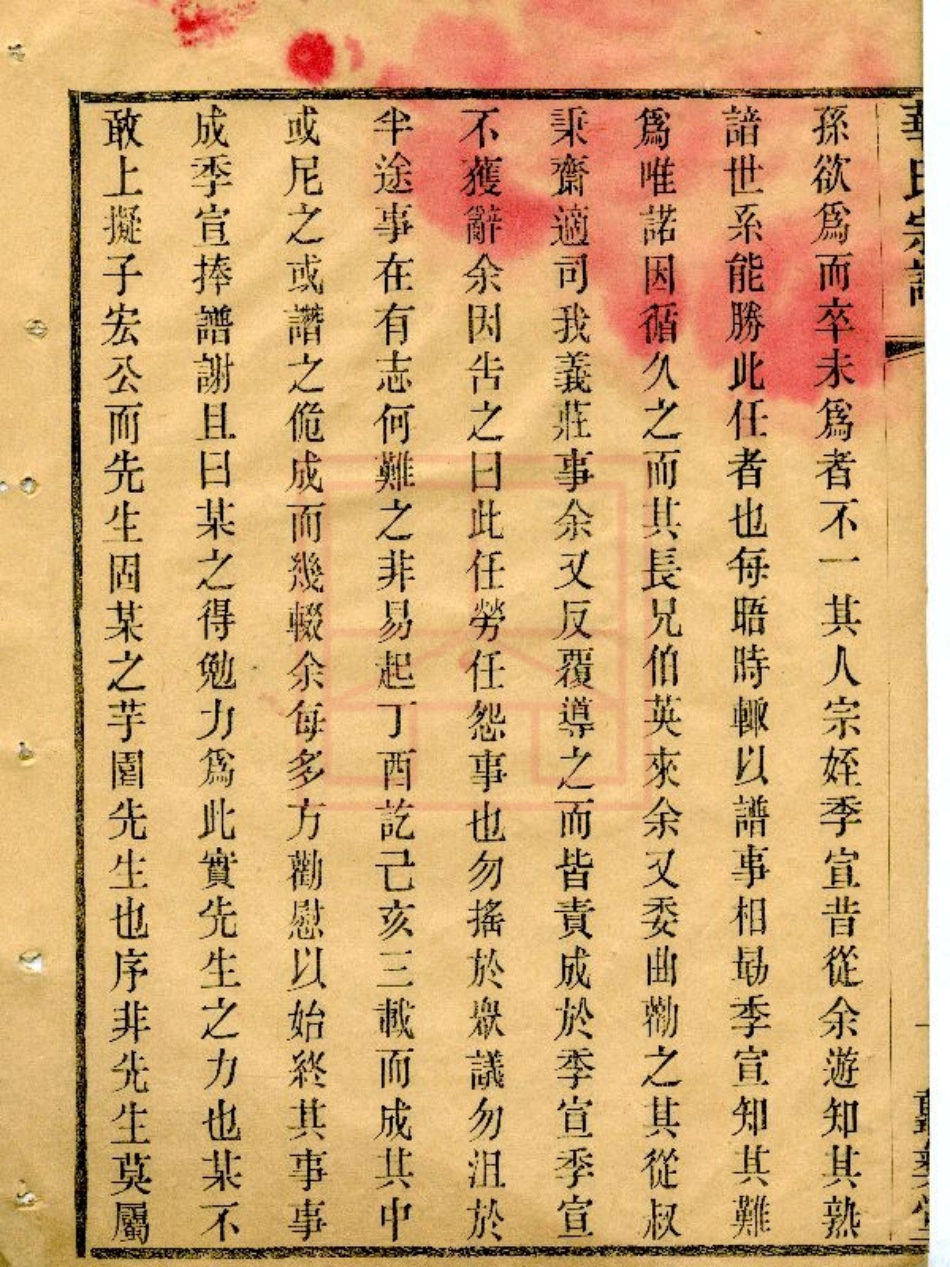 華氏宗譜
孫欲爲而卒未爲者不一其人宗姪季宣昔從余遊知其熟
諳世系能勝此任者也每晤時輒以譜事相勗季宣知其難
爲唯諾因循久之而其長兄伯英來余又委曲勸之其從叔
秉齋適司我義莊事余又反覆導之而皆責成於季宣季宣
不獲辭余因告之曰此任勞任怨事也勿搖於衆議勿沮於
半途事在有志何難之非易起丁酉訖己亥三載而成其中
或尼之或譖之佹成而幾輟余每多方勸慰以始終其事事
成季宣捧譜謝且曰某之得勉力爲此實先生之力也某不
敢上擬子宏公而先生固某之芋園先生也序非先生莫屬